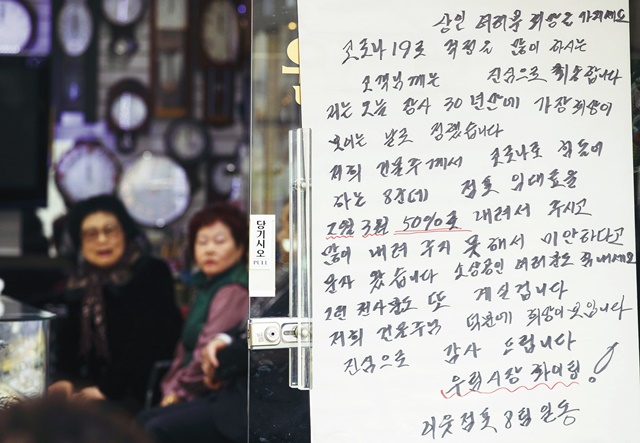 상인 여러분 희망을 가지세요
코로나19로 걱정을 많이 하시는
고객님께는 진심으로 죄송합니다
저는 오늘 장사 30년만에 가장 희망이
보이는 날로 정했습니다
저희 건물주께서 코로나로 힘들어
하는 8칸데 점포 임대료을
2월 3월 50%로 내려서 주시고
많이 내려 주지 못해서 미안하다고
문자 왔습니다 소상공인 여러분도 힘내세요
이런 천사분도 또 계실겁니다
저희 건물주님 덕분에 희망이 보입니다
진심으로 감사 드립니다
우림시장 화이팅!
이웃점포 8명 일동
당기시오
PULL